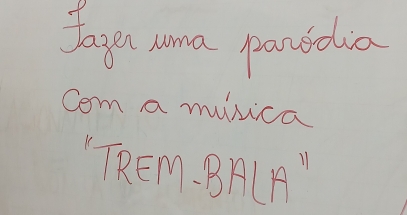 Fazer uma paródia
com a música
"TREM-BALA"